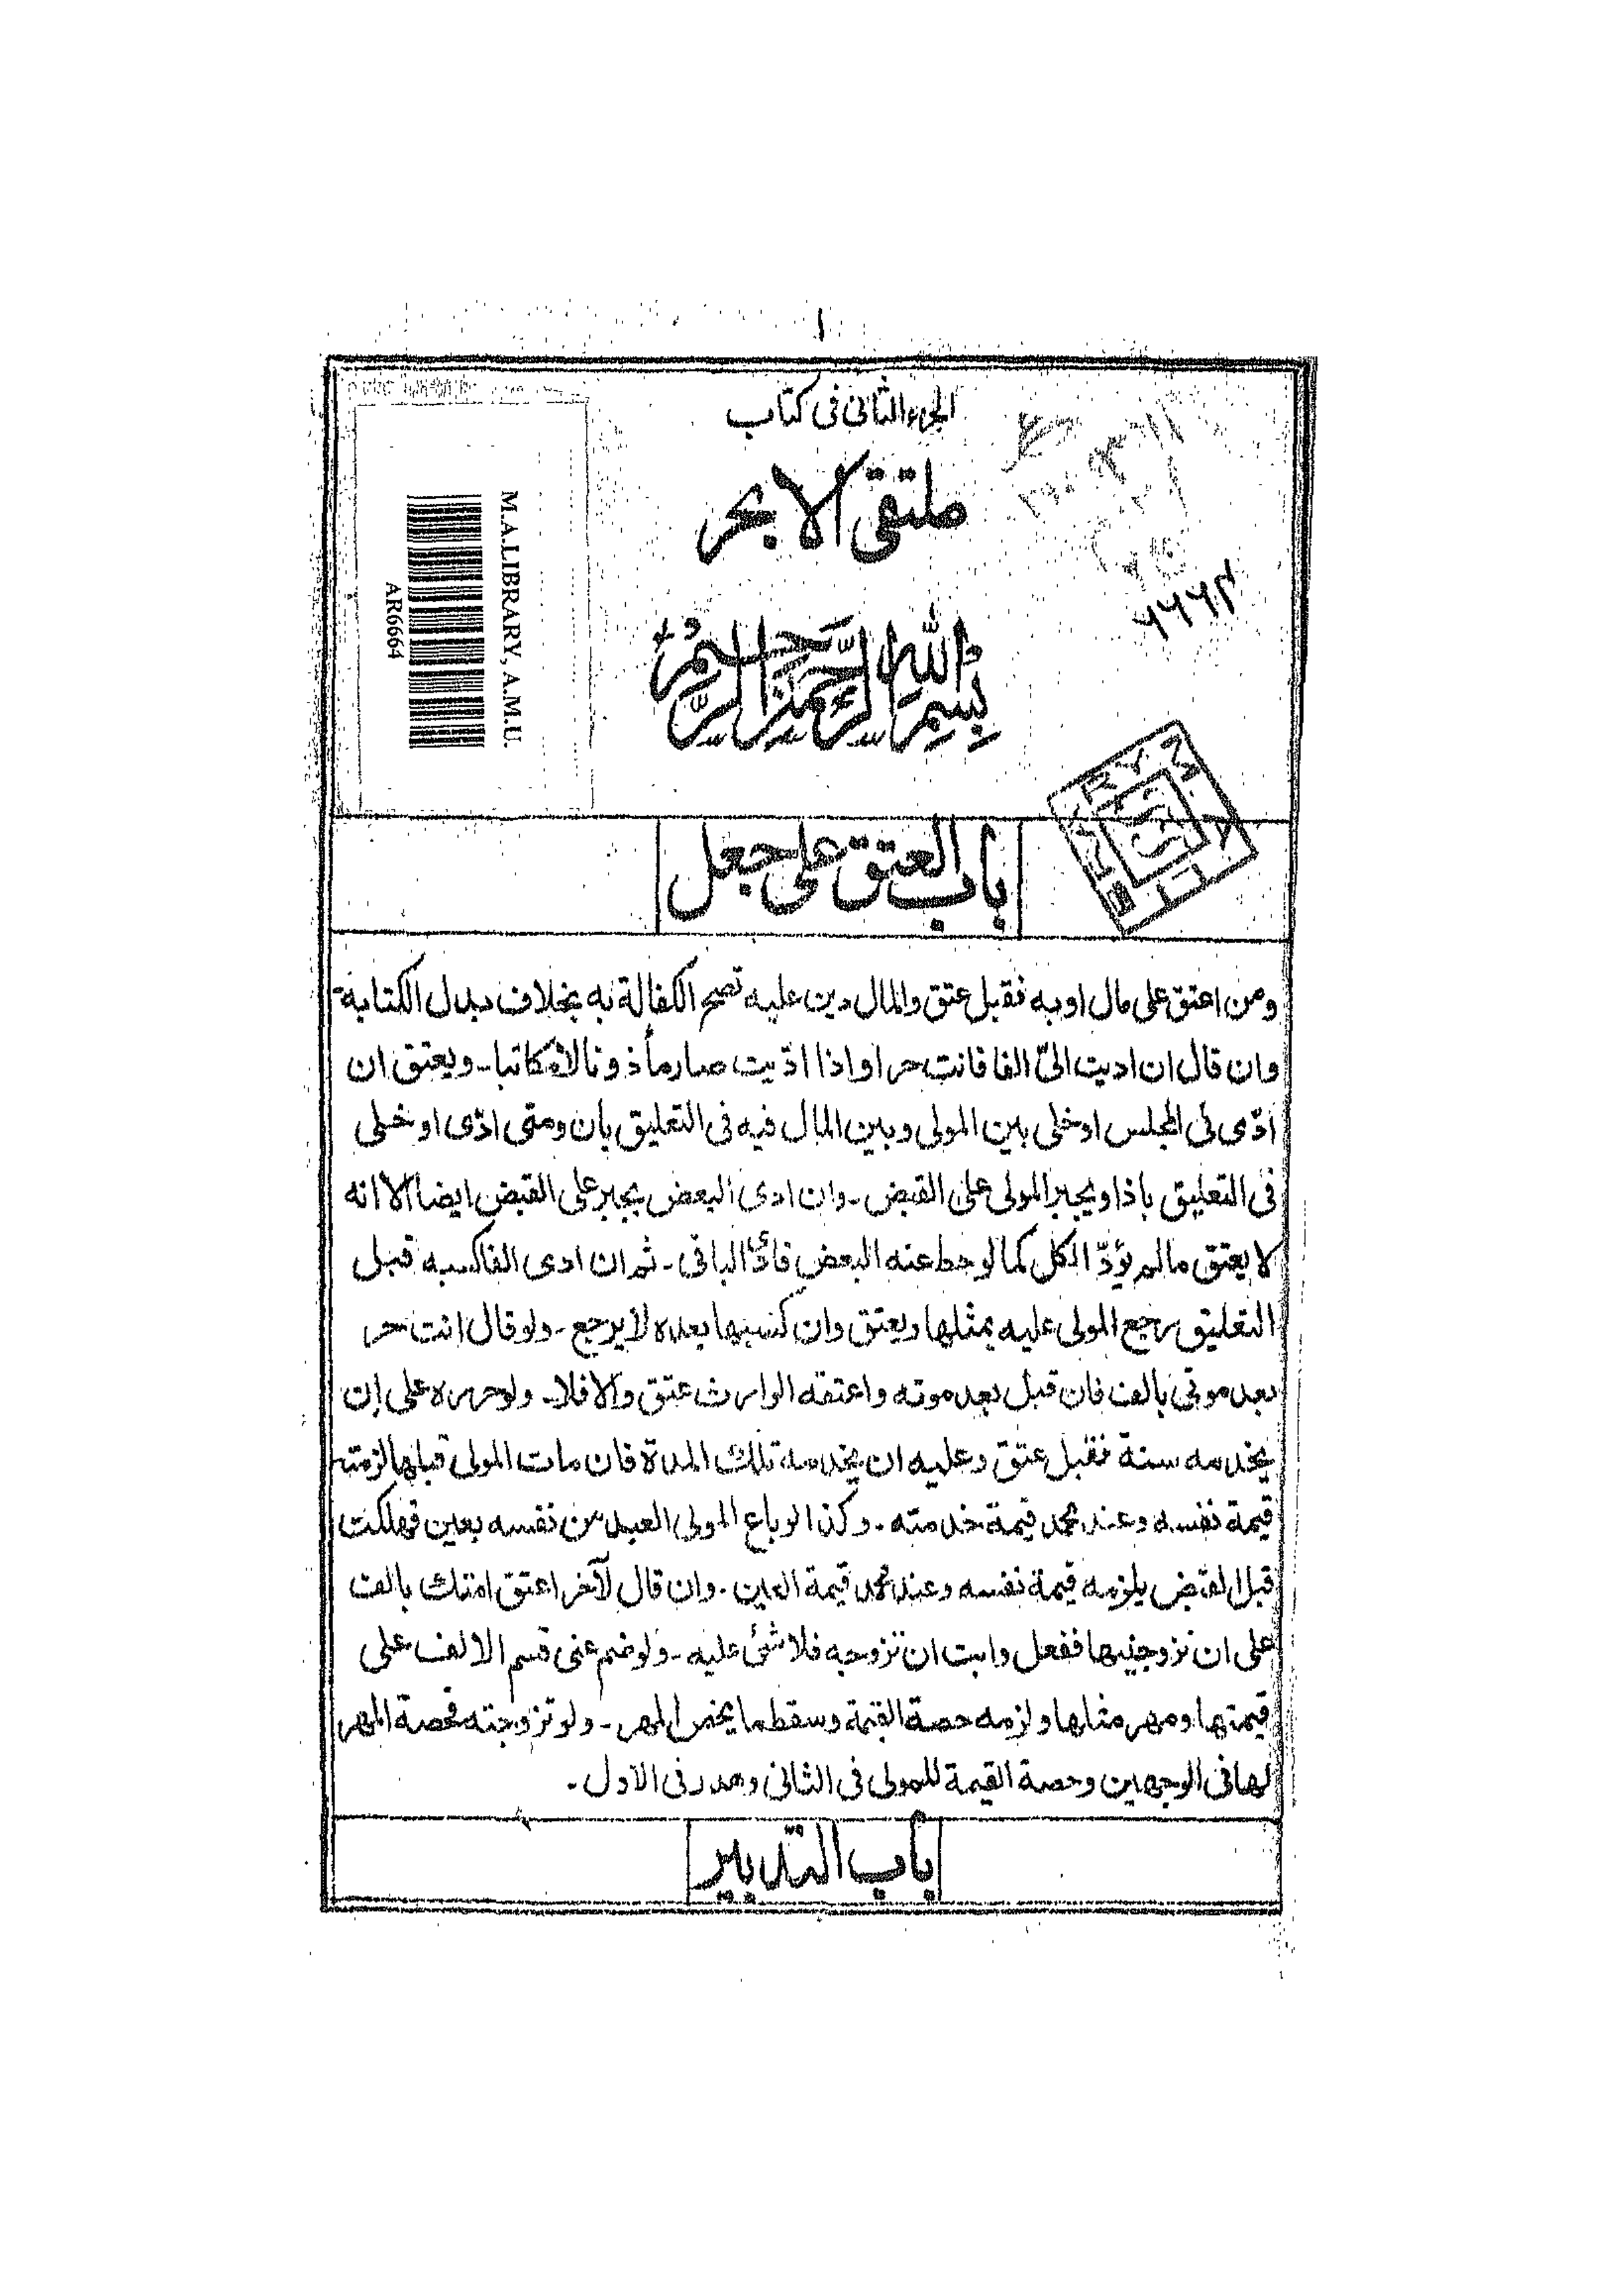 ١
الجزء الثانى فى كتاب
ملتقى الابحر
٦٦٦٤
M.A.LIBRARY, A.M.U.
AR6664
بسم الله الرحمن الرحيم
باب العتق على جعل
ومن اعتق على مال اوبه فقبل عتق والمال دين عليه تصح الكفالة به بخلاف بدل الكتابة-
وان قال ان اديت الىّ الفا فانت حر او اذا ادّيت صار مأذونا لا مكاتبا- ويعتق ان
ادّى فى المجلس او خلى بين المولى وبين المال فيه فى التعليق بان ومتى ادّى او خلى
فى التعليق باذا ويجبر المولى على القبض - وان ادى البعض يجبر على القبض ايضا الا انه
لا يعتق مالم يؤدّ الكل كما لو حط عنه البعض فادّى الباقى - ثم ان ادى الفا كسبه قبل
التعليق رجع المولى عليه بمثلها ويعتق وان كسبها بعده لا يرجع - ولو قال انت حر
بعد موتى بالف فان قبل بعد موته واعتقه الوارث عتق والا فلا- ولو حرره على ان
يخدمه سنة فقبل عتق وعليه ان يخدمه تلك المدة فان مات المولى قبلها لزمته
قيمة نفسه وعند محمد قيمة خدمته - وكذا لو باع المولى العبد من نفسه بعين فهلكت
قبل القبض يلزمه قيمة نفسه وعند محمد قيمة العين - وان قال لآخر اعتق امتك بالف
على ان تزوجنيها ففعل وابت ان تزوجه فلا شئ عليه - ولو ضم عنى قسم الالف على
قيمتها ومهر مثلها ولزمه حصة القيمة وسقط ما يخص المهر - ولو تزوجته فحصة المهر
لها فى الوجهين وحصة القيمة للمولى فى الثانى وهدر فى الاول -
باب التدبير